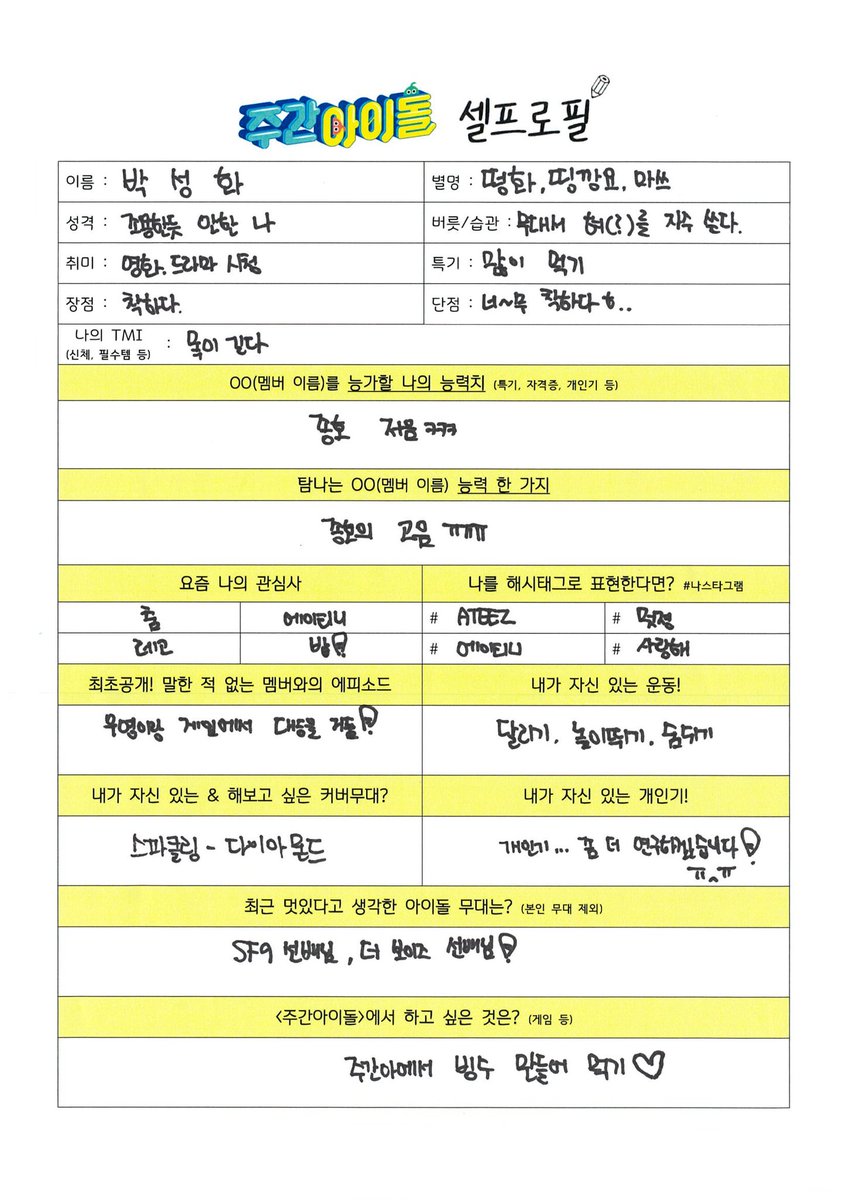 주간아이돌 셀프로필
이름 : 박성화 별명 : 떵화, 띵깡요, 마쓰
성격 : 조용한듯 안한 나 버릇/습관 : 무대서 혀(?)를 자주 쓴다.
취미 : 영화. 드라마 시청 특기 : 많이 먹기
장점 : 착하다. 단점 : 너~무 착하다ㅎ..
나의 TMI
(신체, 필수템 등) : 목이 길다
OO(멤버 이름)를 능가할 나의 능력치 (특기, 자격증, 개인기 등)
종호 저음 ㅋㅋㅋ
탐나는 OO(멤버 이름) 능력 한 가지
종호의 고음 ㅠㅠㅠ
요즘 나의 관심사 나를 해시태그로 표현한다면? #나스타그램
춤 에이티니 # ATEEZ # 멋정
레고 밥! # 에이티니 # 사랑해
최초공개! 말한 적 없는 멤버와의 에피소드 내가 자신 있는 운동!
우영이랑 게임에서 대승을 거둠! 달리기, 높이뛰기, 숨쉬기
내가 자신 있는 & 해보고 싶은 커버무대? 내가 자신 있는 개인기!
스파클링 - 다이아몬드 개인기... 좀 더 연구하겠습니다!
ㅠ^ㅠ
최근 멋있다고 생각한 아이돌 무대는? (본인 무대 제외)
SF9 선배님, 더 보이즈 선배님!
<주간아이돌>에서 하고 싶은 것은? (게임 등)
주간아에서 빙수 만들어 먹기♡